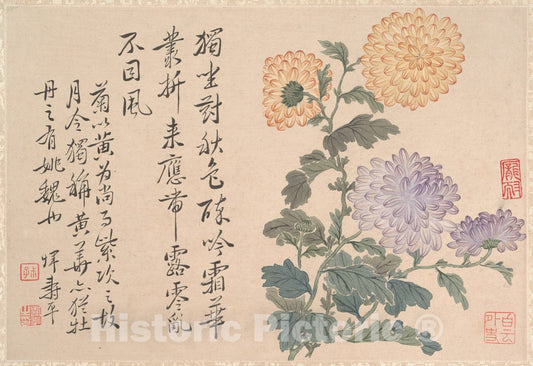 獨坐對秋色醉吟霜華
叢拆来應帶露零亂
不因風
菊以黃为尚而紫次之故
月令獨稱黃華亦猶牡
丹之有姚魏也
惲壽平
白雲外史
Historic Pictoric®